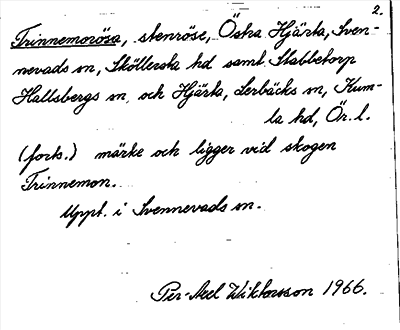 2.
Trinnemorösa, stenröse, Östra Hjärta, Sven-
nevads sn, Sköllersta hd samt Stabbetorp
Hallsbergs sn, och Hjärta, Lerbäcks sn, Kum-
la hd, Ör. l.
(forts.) märke och ligger vid skogen
Trinnemon.
Uppt. i Svennevads sn.
Per-Axel Wiktorsson 1966.